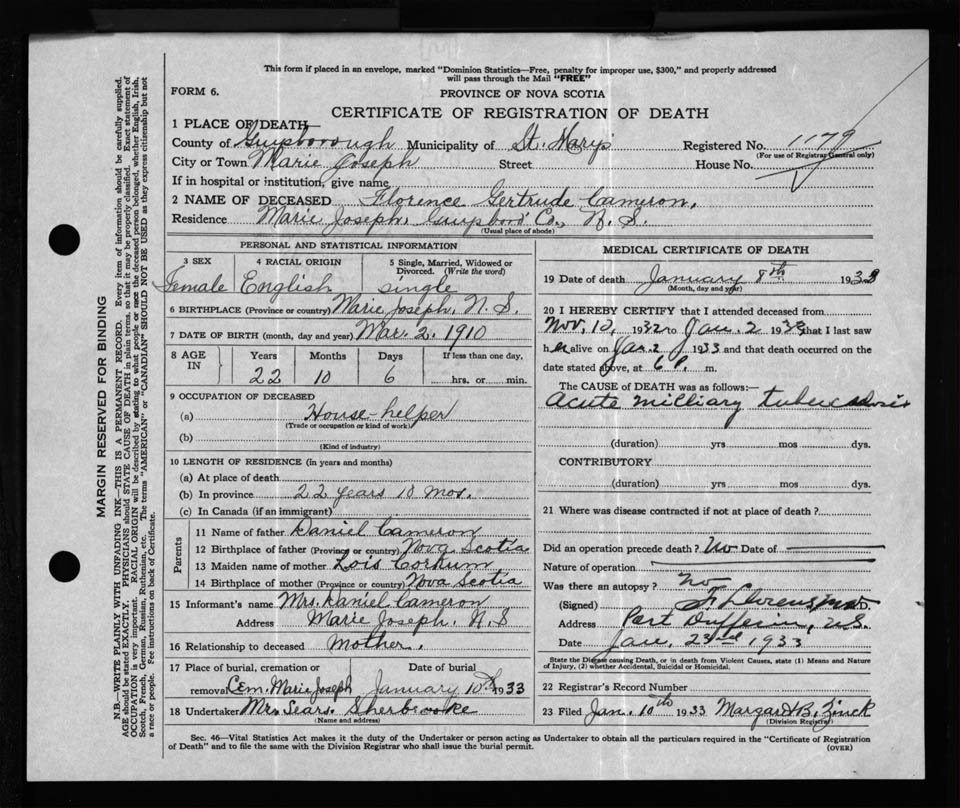 This form if placed in an envelope, marked "Dominion Statistics—Free, penalty for improper use, $300," and properly addressed
will pass through the Mail "FREE"
FORM 6.
PROVINCE OF NOVA SCOTIA
CERTIFICATE OF REGISTRATION OF DEATH
1 PLACE OF DEATH—
County of Guysborough Municipality of St. Mary's Registered No. 1179
(For use of Registrar General only)
City or Town Marie Joseph Street House No.
If in hospital or institution, give name
2 NAME OF DECEASED Florence Gertrude Cameron.
Residence Marie Joseph. Guysboro' Co., N. S.
(Usual place of abode)
PERSONAL AND STATISTICAL INFORMATION
3 SEX 4 RACIAL ORIGIN 5 Single, Married, Widowed or Divorced. (Write the word)
Female English single
6 BIRTHPLACE (Province or country) Marie Joseph, N. S.
7 DATE OF BIRTH (month, day and year) Mar. 2. 1910
8 AGE IN Years Months Days If less than one day,
22 10 6 hrs. or min.
9 OCCUPATION OF DECEASED
(a) House-helper
(Trade or occupation or kind of work)
(b)
(Kind of industry)
10 LENGTH OF RESIDENCE (in years and months)
(a) At place of death
(b) In province 22 years 10 mos.
(c) In Canada (if an immigrant)
Parents
11 Name of father Daniel Cameron
12 Birthplace of father (Province or country) Nova Scotia
13 Maiden name of mother Lois Corkum
14 Birthplace of mother (Province or country) Nova Scotia
15 Informant's name Mrs. Daniel Cameron
Address Marie Joseph. N. S
16 Relationship to deceased Mother.
17 Place of burial, cremation or removal Cem. Marie Joseph Date of burial January 10th 1933
18 Undertaker Mr. Sears. Sherbrooke
(Name and address)
MEDICAL CERTIFICATE OF DEATH
19 Date of death January 8th 1933
(Month, day and year)
20 I HEREBY CERTIFY that I attended deceased from
Nov. 10, 1932 to Jan. 2 1933 that I last saw
her alive on Jan. 2 1933 and that death occurred on the
date stated above, at 6 P. m.
The CAUSE OF DEATH was as follows:—
Acute milliary tuberculosis
(duration) yrs mos dys.
CONTRIBUTORY
(duration) yrs mos dys.
21 Where was disease contracted if not at place of death?
Did an operation precede death? No Date of
Nature of operation
Was there an autopsy? No
(Signed) M.D.
Address Port Dufferin, N.S.
Date Jan. 23rd 1933
State the Disease causing Death, or in death from Violent Causes, state (1) Means and Nature
of Injury, (2) whether Accidental, Suicidal or Homicidal.
22 Registrar's Record Number
23 Filed Jan. 10th 1933 Margaret B. Zinck
(Division Registrar)
Sec. 46—Vital Statistics Act makes it the duty of the Undertaker or person acting as Undertaker to obtain all the particulars required in the "Certificate of Registration
of Death" and to file the same with the Division Registrar who shall issue the burial permit.
(OVER)
MARGIN RESERVED FOR BINDING
N.B.—WRITE PLAINLY WITH UNFADING INK—THIS IS A PERMANENT RECORD. Every item of information should be carefully supplied.
AGE should be stated EXACTLY. PHYSICIANS should STATE CAUSE OF DEATH in plain terms, so that it may be properly classified. Exact statement of
OCCUPATION is very important. RACIAL ORIGIN will be described by stating to what people or race the deceased person belonged, whether English, Irish,
Scotch, French, German, Russian, Ruthenian, etc. The terms "AMERICAN" or "CANADIAN" SHOULD NOT BE USED as they express citizenship but not
a race or people. See instructions on back of Certificate.